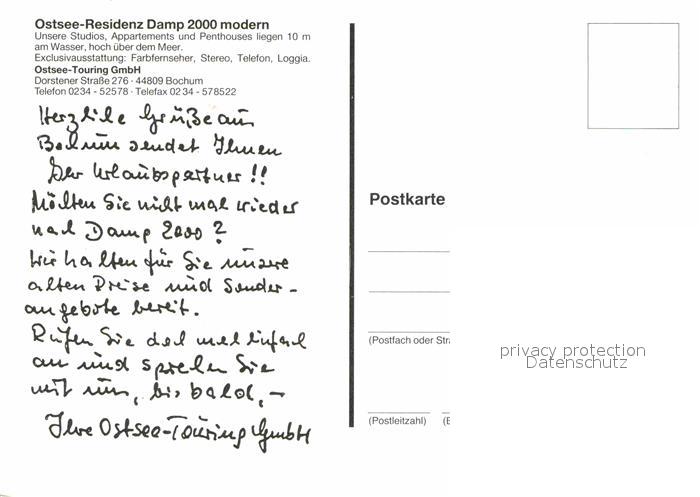 Ostsee-Residenz Damp 2000 modern
Unsere Studios, Appartements und Penthouses liegen 10 m
am Wasser, hoch über dem Meer.
Exclusivausstattung: Farbfernseher, Stereo, Telefon, Loggia.
Ostsee-Touring GmbH
Dorstener Straße 276 · 44809 Bochum
Telefon 0234 - 52578 · Telefax 0234 - 578522
Herzliche Grüße aus
Bochum sendet Ihnen
Ihr Urlaubspartner !!
Möchten Sie nicht mal wieder
nach Damp 2000 ?
Wir halten für Sie unsere
alten Preise und Sonder-
angebote bereit.
Rufen Sie doch mal einfach
an und sprechen Sie
mit uns, bis bald, -
Ihre Ostsee-Touring GmbH
Postkarte
(Postfach oder Stra
(Postleitzahl)
privacy protection
Datenschutz